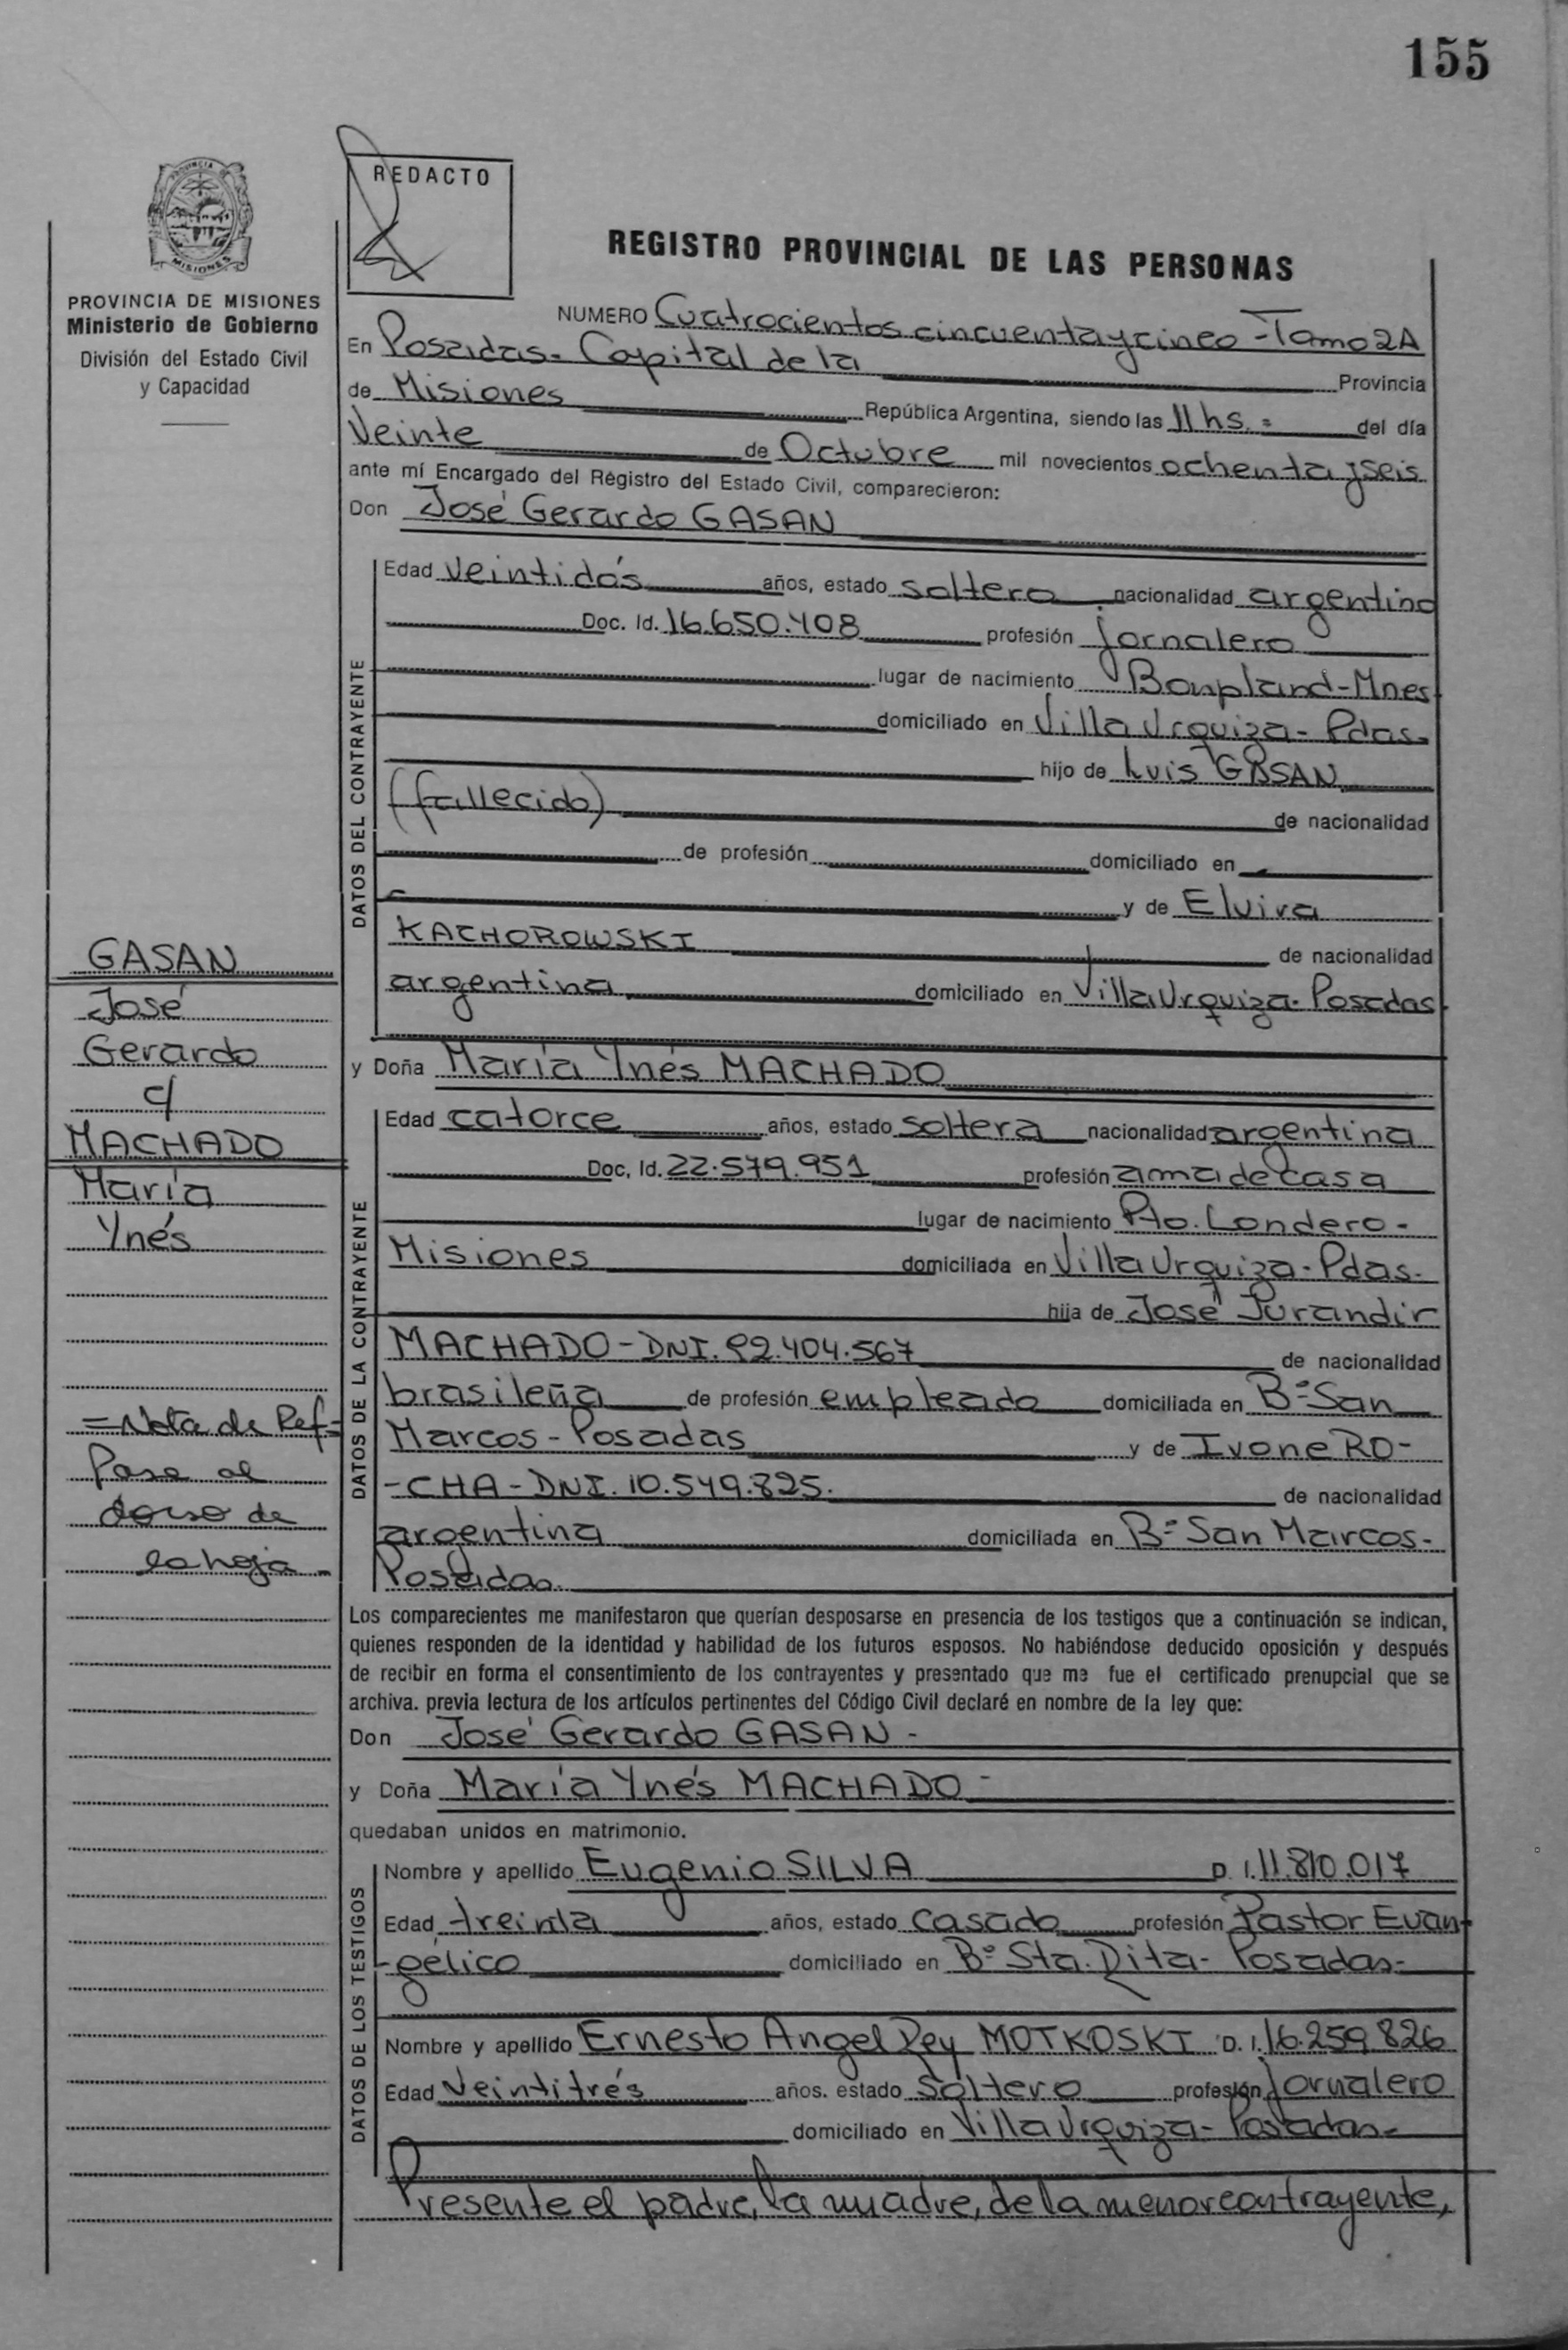 155
PROVINCIA
MISIONES
PROVINCIA DE MISIONES
Ministerio de Gobierno
División del Estado Civil
y Capacidad
REDACTO
REGISTRO PROVINCIAL DE LAS PERSONAS
NUMERO Cuatrocientos cincuenta y cinco - Tomo 2A
En Posadas - Capital de la Provincia
de Misiones República Argentina, siendo las 11 hs. - del día
Veinte de Octubre mil novecientos ochenta y seis
ante mí Encargado del Registro del Estado Civil, comparecieron:
Don José Gerardo GASAN
DATOS DEL CONTRAYENTE
Edad veintidós años, estado soltero nacionalidad argentino
Doc. Id. 16.650.408 profesión jornalero
lugar de nacimiento Bonpland - Mnes
domiciliado en Villa Urquiza - Pdas -
hijo de Luis GASAN
(fallecido) de nacionalidad
de profesión domiciliado en
y de Elvira
KACHOROWSKI de nacionalidad
argentina domiciliado en Villa Urquiza - Posadas -
y Doña María Ynés MACHADO
DATOS DE LA CONTRAYENTE
Edad catorce años, estado soltera nacionalidad argentina
Doc. Id. 22.579.951 profesión ama de casa
lugar de nacimiento Pto. Londero -
Misiones domiciliada en Villa Urquiza - Pdas.
hija de José Jurandir
MACHADO - DNI. 92.404.567 de nacionalidad
brasileña de profesión empleado domiciliada en Bº San
Marcos - Posadas y de Ivone RO-
-CHA - DNI. 10.549.825. de nacionalidad
argentina domiciliada en Bº San Marcos -
Posadas
Los comparecientes me manifestaron que querían desposarse en presencia de los testigos que a continuación se indican,
quienes responden de la identidad y habilidad de los futuros esposos. No habiéndose deducido oposición y después
de recibir en forma el consentimiento de los contrayentes y presentado que me fue el certificado prenupcial que se
archiva. previa lectura de los artículos pertinentes del Código Civil declaré en nombre de la ley que:
Don José Gerardo GASAN -
y Doña María Ynés MACHADO -
quedaban unidos en matrimonio.
DATOS DE LOS TESTIGOS
Nombre y apellido Eugenio SILVA D. I. 11.810.017
Edad treinta años, estado casado profesión Pastor Evan-
-gélico domiciliado en Bº Sta. Rita - Posadas -
Nombre y apellido Ernesto Angel Rey MOTKOSKI D. I. 16.259.826
Edad veintitrés años. estado soltero profesión jornalero
domiciliado en Villa Urquiza - Posadas -
Presente el padre, la madre, de la menor contrayente,
GASAN
José
Gerardo
c/
MACHADO
María
Ynés
= Nota de Ref =
Pase al
dorso de
la hoja -